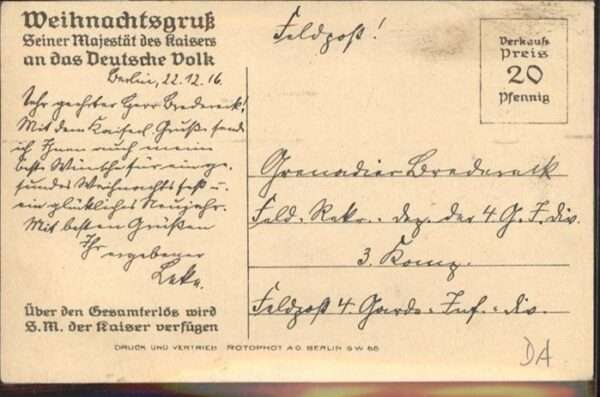 Weihnachtsgruß
Seiner Majestät des Kaisers
an das Deutsche Volk
Berlin, 22.12.16.
Sehr geehrter Herr Bredereck!
Mit dem Kaiserl. Gruße sende
ich Ihnen auch meine
beste Wünsche für ein ge-
sundes Weihnachtsfest u.
ein glückliches Neujahr.
Mit besten Grüßen
Ihr ergebener
Über den Gesamterlös wird
S.M. der Kaiser verfügen
Feldpost!
Verkaufs
Preis
20
Pfennig
Grenadier Bredereck
Feld-Rekr.-dep. der 4 G. I. div.
3. Komp.
Feldpost 4. Garde-Inf.-div.
DRUCK UND VERTRIEB ROTOPHOT A.G. BERLIN SW 68
DA